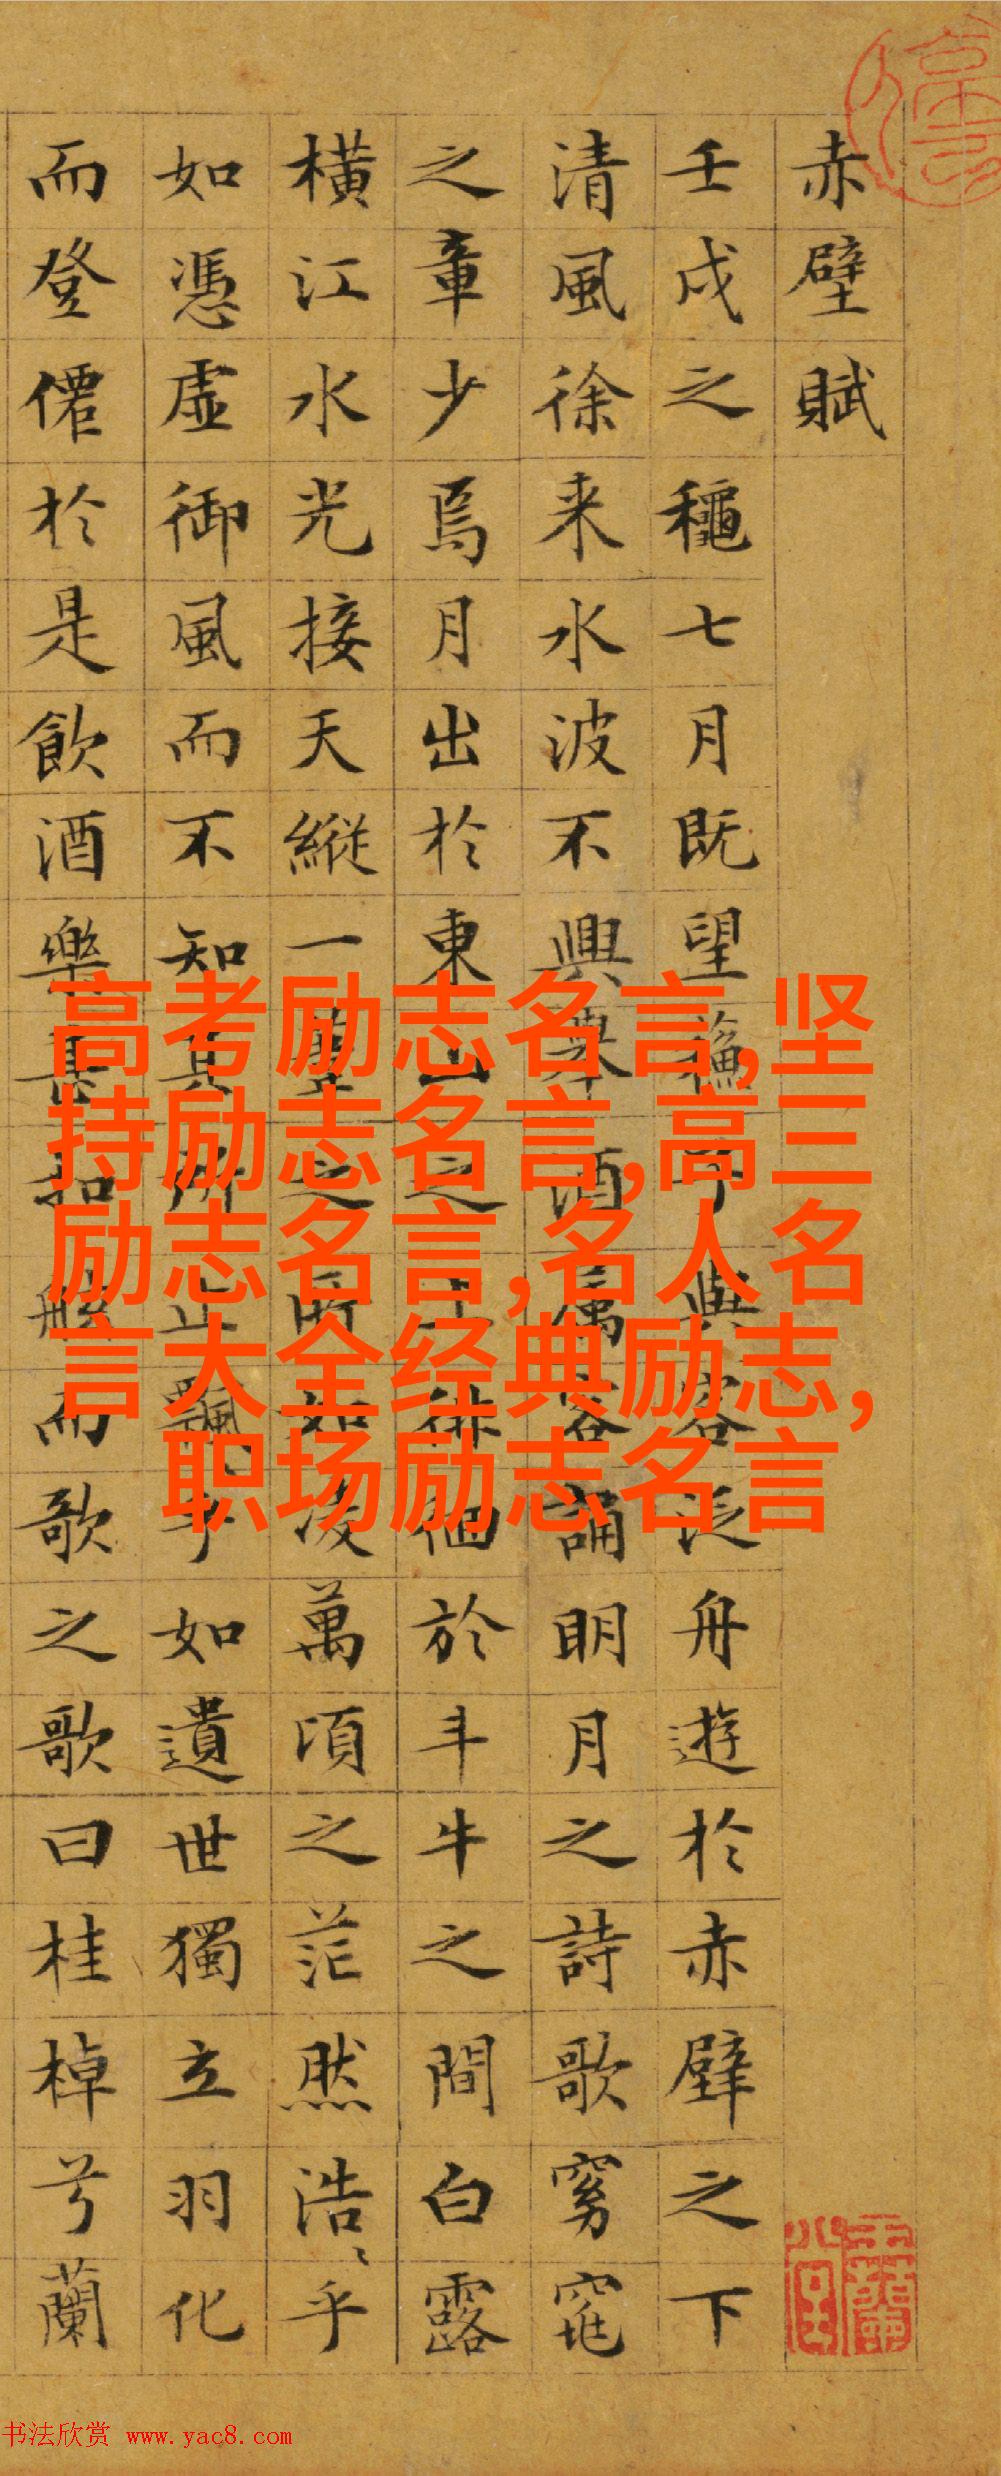 赤壁賦
壬戌之穐七月既望蘓子與客泛舟遊於赤壁之下
清風徐来水波不興舉酒属客誦明月之詩歌窈窕
之章少焉月出於東山之上徘徊於斗牛之間白露
橫江水光接天縱一葦之所如凌萬頃之茫然浩〻乎
如憑虛御風而不知其所止飄〻乎如遺世獨立羽化
而登僊於是飲酒樂甚扣舷而歌之歌曰桂棹兮蘭
高考励志名言,坚
持励志名言,高三
励志名言,名人名
言大全经典励志,
职场励志名言
书法欣赏 www.yac8.com